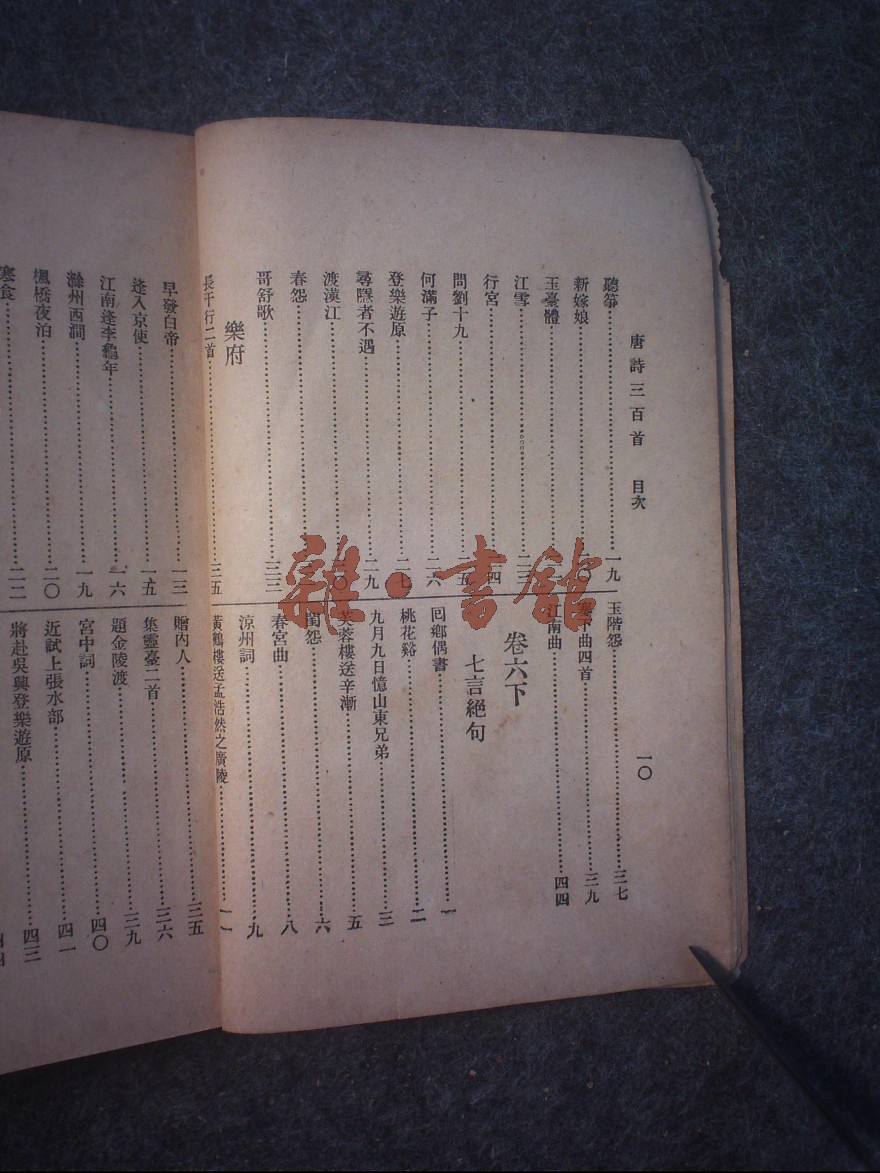 唐詩三百首 目次
一〇
聽箏……一九
新嫁娘……〇
玉臺體……
江雪……
行宮……四
問劉十九……五
何滿子……二六
登樂遊原……二七
尋隱者不遇……二九
渡漢江……〇
春怨……
哥舒歌……三三
樂府
長干行二首……三五
玉階怨……三七
塞下曲四首……三九
江南曲……四四
卷六下
七言絕句
回鄉偶書……一
桃花谿……二
九月九日憶山東兄弟……三
芙蓉樓送辛漸……五
閨怨……六
春宮曲……八
涼州詞……九
黃鶴樓送孟浩然之廣陵……一一
早發白帝……一三
逢入京使……一五
江南逢李龜年……一六
滁州西澗……一九
楓橋夜泊……二〇
寒食……二二
贈內人……三五
集靈臺二首……三六
題金陵渡……三九
宮中詞……四〇
近試上張水部……四一
將赴吳興登樂遊原……四三
雜·書館